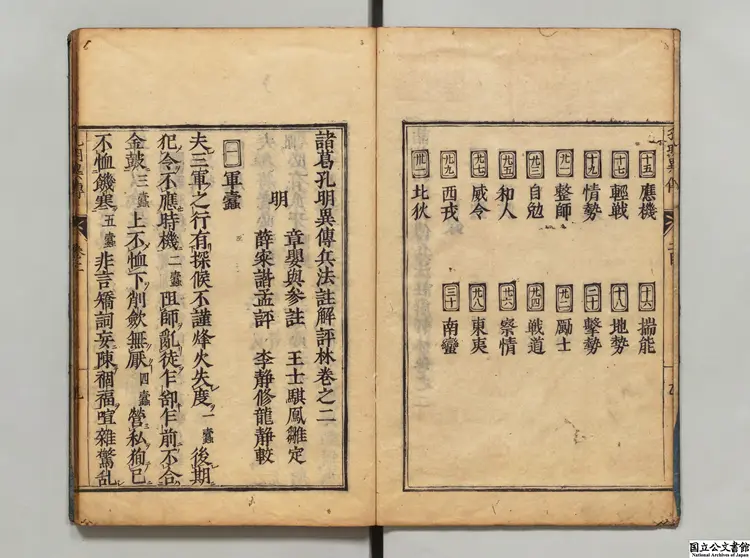 十五 應機 十六 揣能
十七 輕戦 十八 地勢
十九 情勢 二十 擊勢
廿一 整師 廿二 勵士
廿三 自勉 廿四 戦道
廿五 和人 廿六 察情
廿七 威令 廿八 東夷
廿九 西戎 三十 南蠻
卅一 北狄
諸葛孔明異傳兵法註解評林卷之二
章嬰與參註 王士騏鳳雛定
明
薛寀諧孟評 李靜修龍靜較
一 軍蠹
夫三軍之行有探候不謹烽火失度 一蠹 後期
犯令不應時機 二蠹 阻師亂徒乍卻乍前不合
金鼓 三蠹 上不恤下削斂無厭 四蠹 營私狥已
不恤饑寒 五蠹 非言矯詞妄陳禍福喧雜驚乱
卷二
国立公文書館
National Archives of Japan